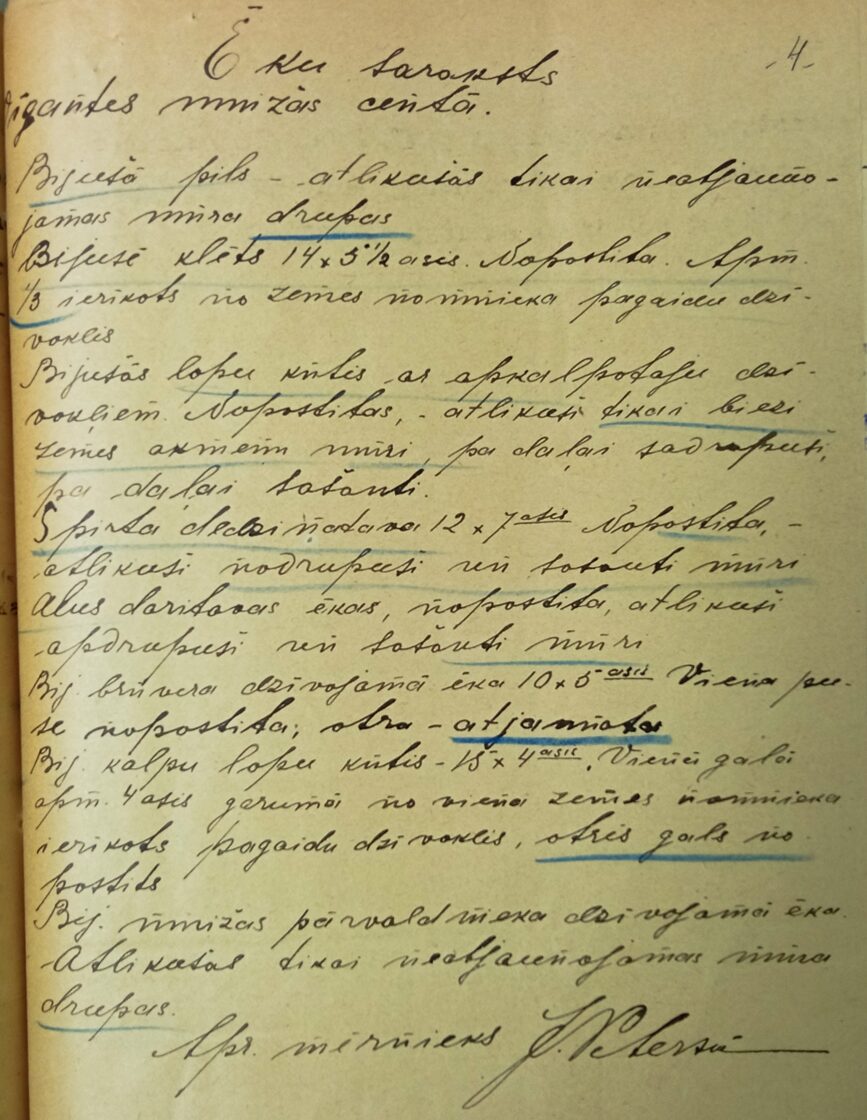 -4-
Ēku saraksts
igantes muižas centā.
Bijušā pils - atlikušās tikai neatjauno-
jamas mūra drupas
Bijusē klēts 14 x 5 1/2 asis. Nopostita. Apm.
1/3 ierikots no zemes nomnieka pagaidu dzi-
voklis
Bijušās lopu kūtis ar apkalpotaju dzi-
vokļiem. Nopostitas, - atlikuši tikai biezi
zemes akmeņu mūri, pa daļai sadrupuši,
pa daļai sašauti.
Spirta dedzinatava 12 x 7 asis Nopostita, -
atlikuši nodrupuši un sašauti mūri
Alus daritavas ēkas, nopostita, atlikuši
apdrupuši un sašauti mūri
Bij. brūvera dzīvojamā ēka 10 x 5 asis Viena pu-
se nopostita; otra - atjaunota
Bij. kalpu lopu kūtis - 15 x 4 asis. Vienā galā
apm. 4 asis garumā no viena zemes nomnieka
ierikots pagaidu dzivoklis, otris gals no
postits
Bij. muižas pārvaldnieka dzīvojamā ēka.
Atlikušas tikai neatjaunojamas mūra
drupas.
Apr. mērnieks J. Petersu